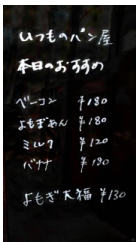 いつものパン屋
本日のおすすめ
ベーコン ¥180
よもぎあん ¥180
ミルク ¥120
バナナ ¥190
よもぎ大福 ¥130